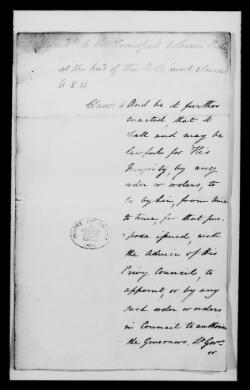 to the Transport
at the End of the Bill insert Clauses
A & B
Clause A And be it further
enacted that it
shall and may be
lawful for His
Majesty, by any
order or orders, to
be by him from time
to time, for that pur-
=pose issued, with
the Advice of His
Privy Council, to
appoint, or by any
such order or orders
in Council to authorise
the Governor, Lt Govr
or